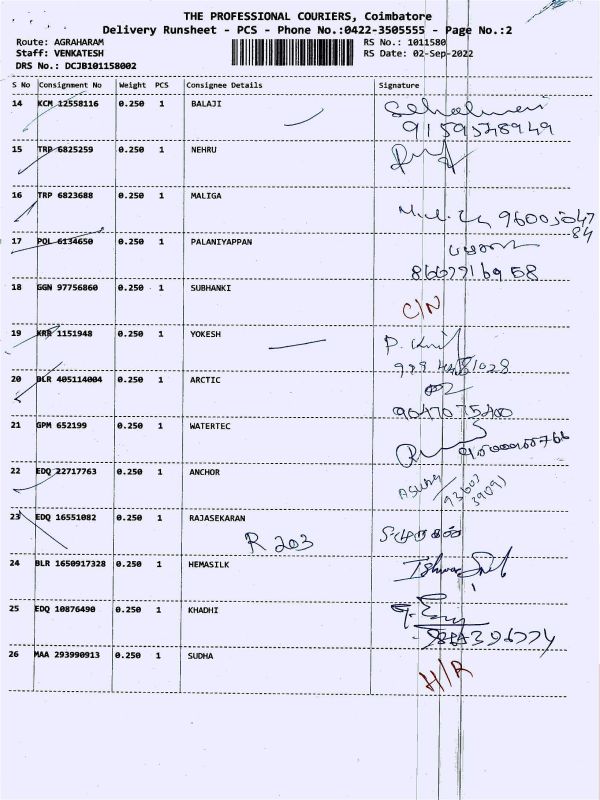 THE PROFESSIONAL COURIERS, Coimbatore
Delivery Runsheet - PCS - Phone No.:0422-3505555 - Page No.:2
Route: AGRAHARAM RS No.: 1011580
Staff: VENKATESH RS Date: 02-Sep-2022
DRS No.: DCJB101158002
S No Consignment No Weight PCS Consignee Details Signature
14 KCM 12558116 0.250 1 BALAJI
9159578949
15 TRP 6825259 0.250 1 NEHRU
16 TRP 6823688 0.250 1 MALIGA
17 POL 6134650 0.250 1 PALANIYAPPAN
18 GGN 97756860 0.250 1 SUBHANKI
C/N
19 KRR 1151948 0.250 1 YOKESH
20 BLR 405114004 0.250 1 ARCTIC
21 GPM 652199 0.250 1 WATERTEC
22 EDQ 22717763 0.250 1 ANCHOR
23 EDQ 16551082 0.250 1 RAJASEKARAN
R 203
24 BLR 1650917328 0.250 1 HEMASILK
25 EDQ 10876490 0.250 1 KHADHI
26 MAA 293990913 0.250 1 SUDHA
H/R